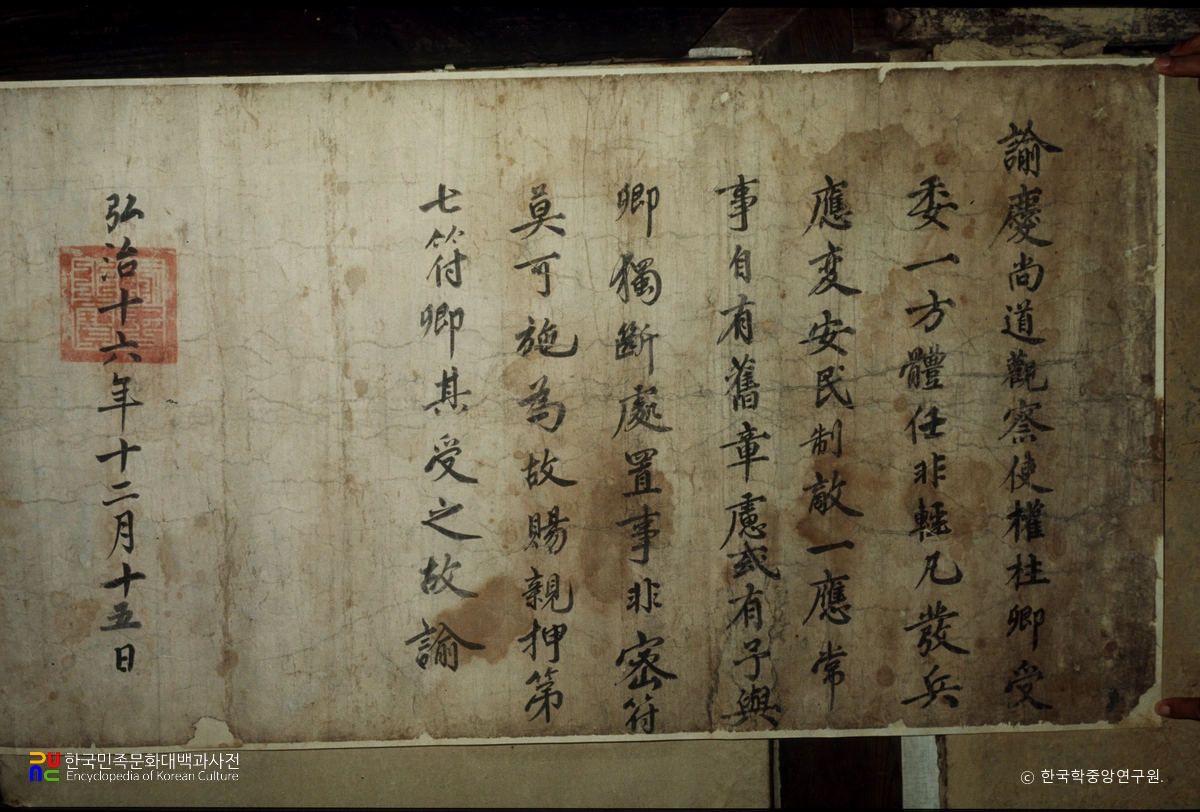 諭慶尚道觀察使權柱卿受
委一方體任非輕凡發兵
應変安民制敵一應常
事自有舊章慮或有予與
卿獨斷處置事非密符
莫可施為故賜親押第
七符卿其受之故諭
弘治十六年十二月十五日
한국민족문화대백과사전
Encyclopedia of Korean Culture
© 한국학중앙연구원.